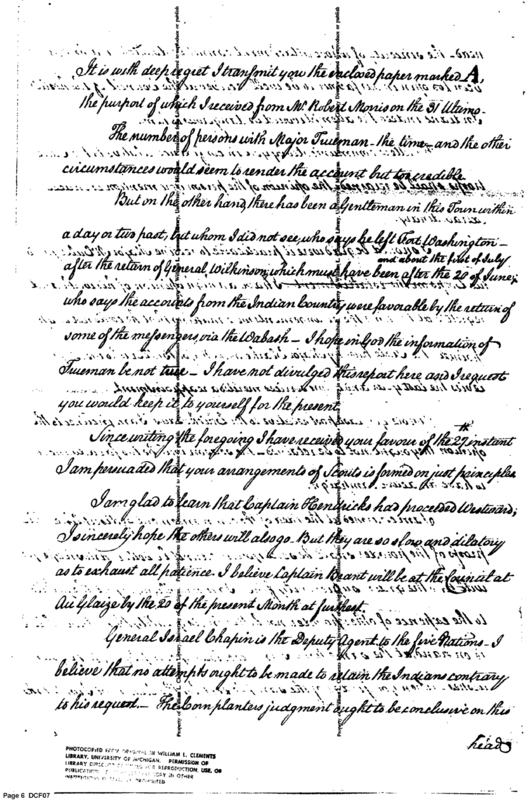 It is with deep regret I transmit you the enclosed paper marked A,
the purport of which I received from Mr Robert Morris on the 31 Ultimo.
The number of persons with Major Trueman - the time - and the other
circumstances would seem to render the account but too credible
But on the other hand, there has been a Gentleman in this Town within
a day or two past, but whom I did not see, who says he left Fort Washington -
and about the first of July
after the return of General Wilkinson, which must have been after the 20 of June;
who says the accounts from the Indian Country were favorable by the return of
some of the messengers via the Wabash - I hope in God the information of
Trueman be not true - I have not divulged this report here and I request
you would keep it to yourself for the present
Since writing the foregoing I have received your favour of the 27th instant
I am persuaded that your arrangements of Scouts is formed on just principles
I am glad to learn that Captain Hendricks had proceeded Westward;
I sincerely hope the others will also go. But they are so slow and dilatory
as to exhaust all patience. I believe Captain Brant will be at the Council at
Au Glaize by the 20 of the present Month at furthest.
General Israel Chapin is the Deputy Agent to the five Nations - I
believe that no attempts ought to be made to retain the Indians contrary
to his request - The Cornplanters judgment ought to be conclusive on this
head
PHOTOCOPIED FROM ORIGINAL IN WILLIAM L. CLEMENTS
LIBRARY, UNIVERSITY OF MICHIGAN. PERMISSION OF
LIBRARY REPRODUCTION, USE, OR
PUBLICATION. COPY IN OTHER
PROHIBITED
Page 6 DCF07